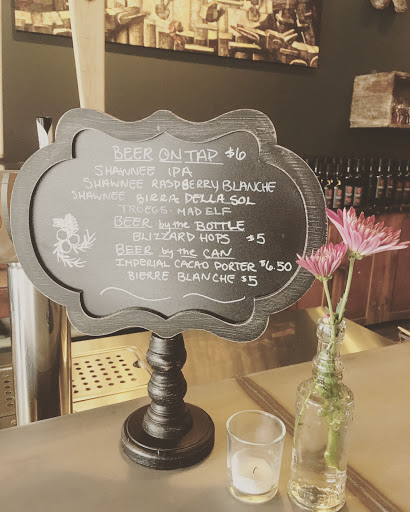 BEER ON TAP $6
SHAWNEE IPA
SHAWNEE RASPBERRY BLANCHE
SHAWNEE BIRRA DELLA SOL
TROEGS - MAD ELF
BEER by the BOTTLE
BLIZZARD HOPS $5
BEER by the CAN
IMPERIAL CACAO PORTER $6.50
BIERRE BLANCHE $5